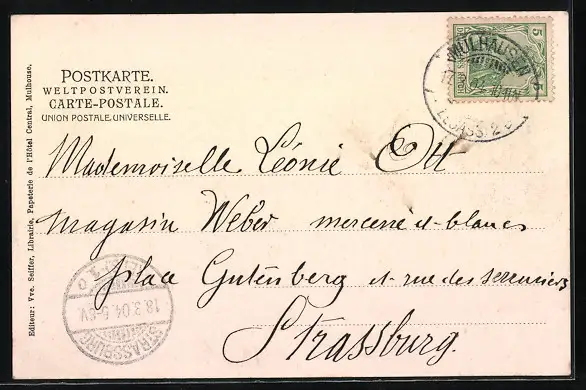 POSTKARTE.
WELTPOSTVEREIN.
CARTE-POSTALE.
UNION POSTALE UNIVERSELLE.
5 5
MÜLHAUSEN
Mademoiselle Léonie Ott
Magasin Weber mercerie et blancs
place Gutenberg et rue des serruriers
Strassburg.
STRASSBURG
18.3.04.5-6V.
Editeur: Vve. Seiffer, Librairie, Papeterie de l'Hôtel Central, Mulhouse.